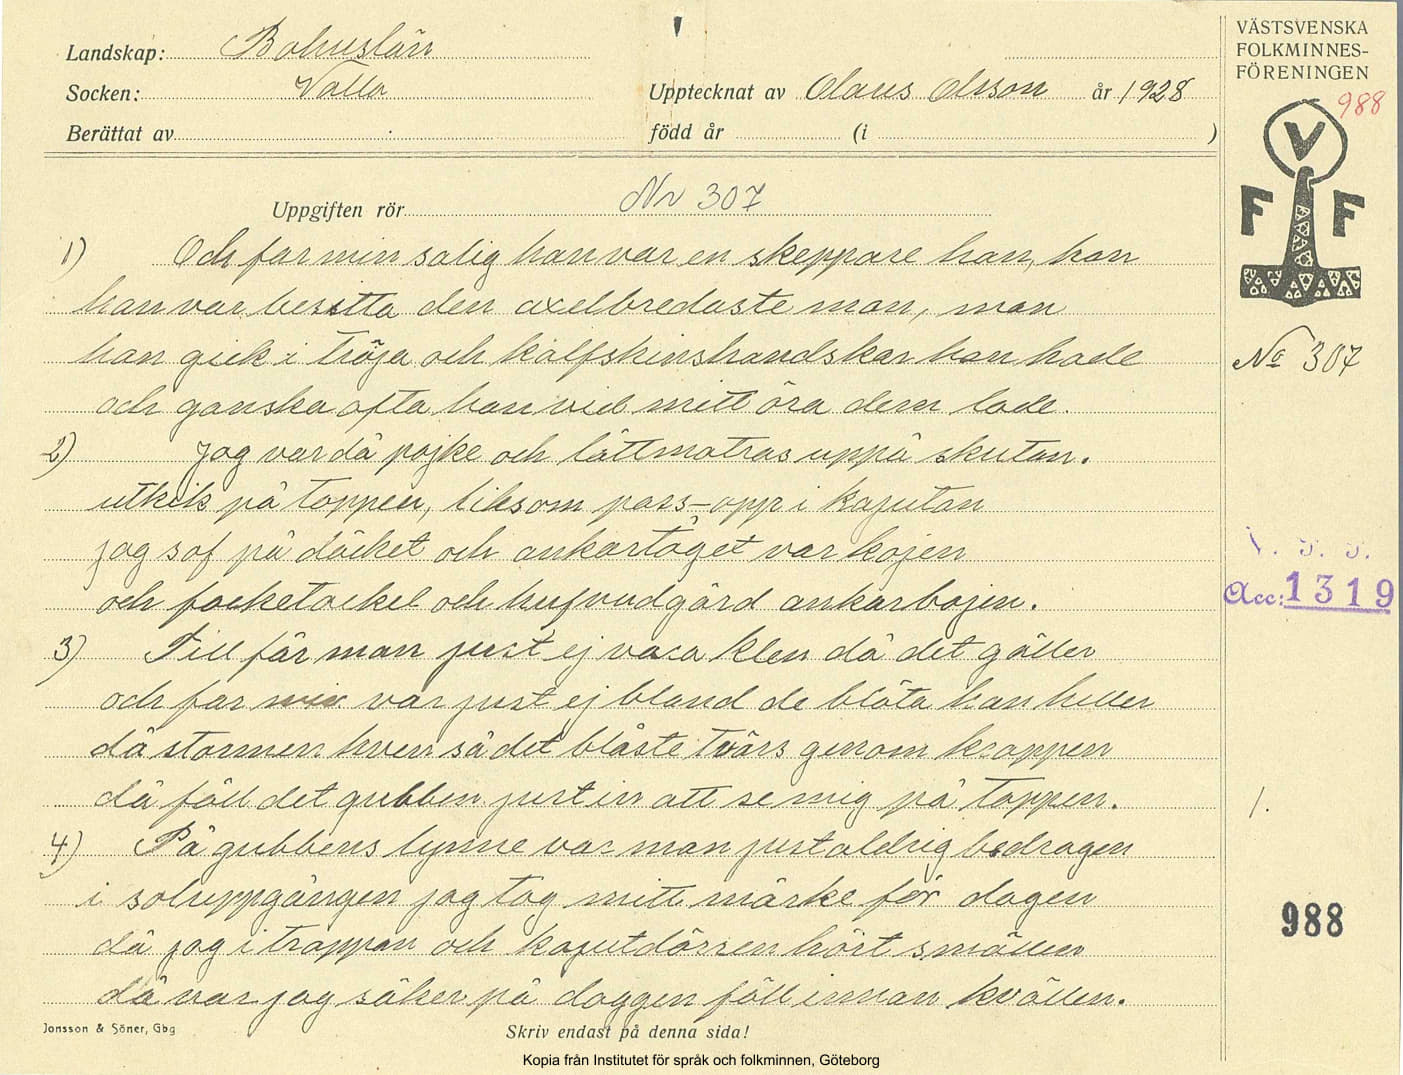 Landskap: Bohuslän
Socken: Valla
Upptecknat av Olaus Olsson år 1928
Berättat av
född år (i )
Uppgiften rör Nr 307
1) Och far min salig han var en skeppare han, han
han var besitta den axelbredaste man, man
han gick i tröja och kalfskinshandskar han hade
och ganska ofta han vid mitt öra dem lade.
2) Jag var då pojke och lättmatras uppå skutan.
utkik på toppen, liksom pass-opp i kajutan
jag sof på däcket och ankartåget var kojen
och focketackel och hufvudgärd ankarbojen.
3) Till får man just ej vara klen då det gäller
och far min var just ej bland de blöta han heller
då stormen hven så det blåste tvärs genom kroppen
då föll det gubben just in att se mig på toppen.
4) På gubbens lynne var man just aldrig bedragen
i soluppgången jag tog mitt märke för dagen
då jag i trappan och kajutdörren hört smällen
då var jag säker på daggen föll innan kvällen.
Jonsson & Söner, Gbg
Skriv endast på denna sida!
Kopia från Institutet för språk och folkminnen, Göteborg
VÄSTSVENSKA
FOLKMINNES-
FÖRENINGEN
988
V
F F
No 307
V. F. F.
Acc: 1319
1.
988